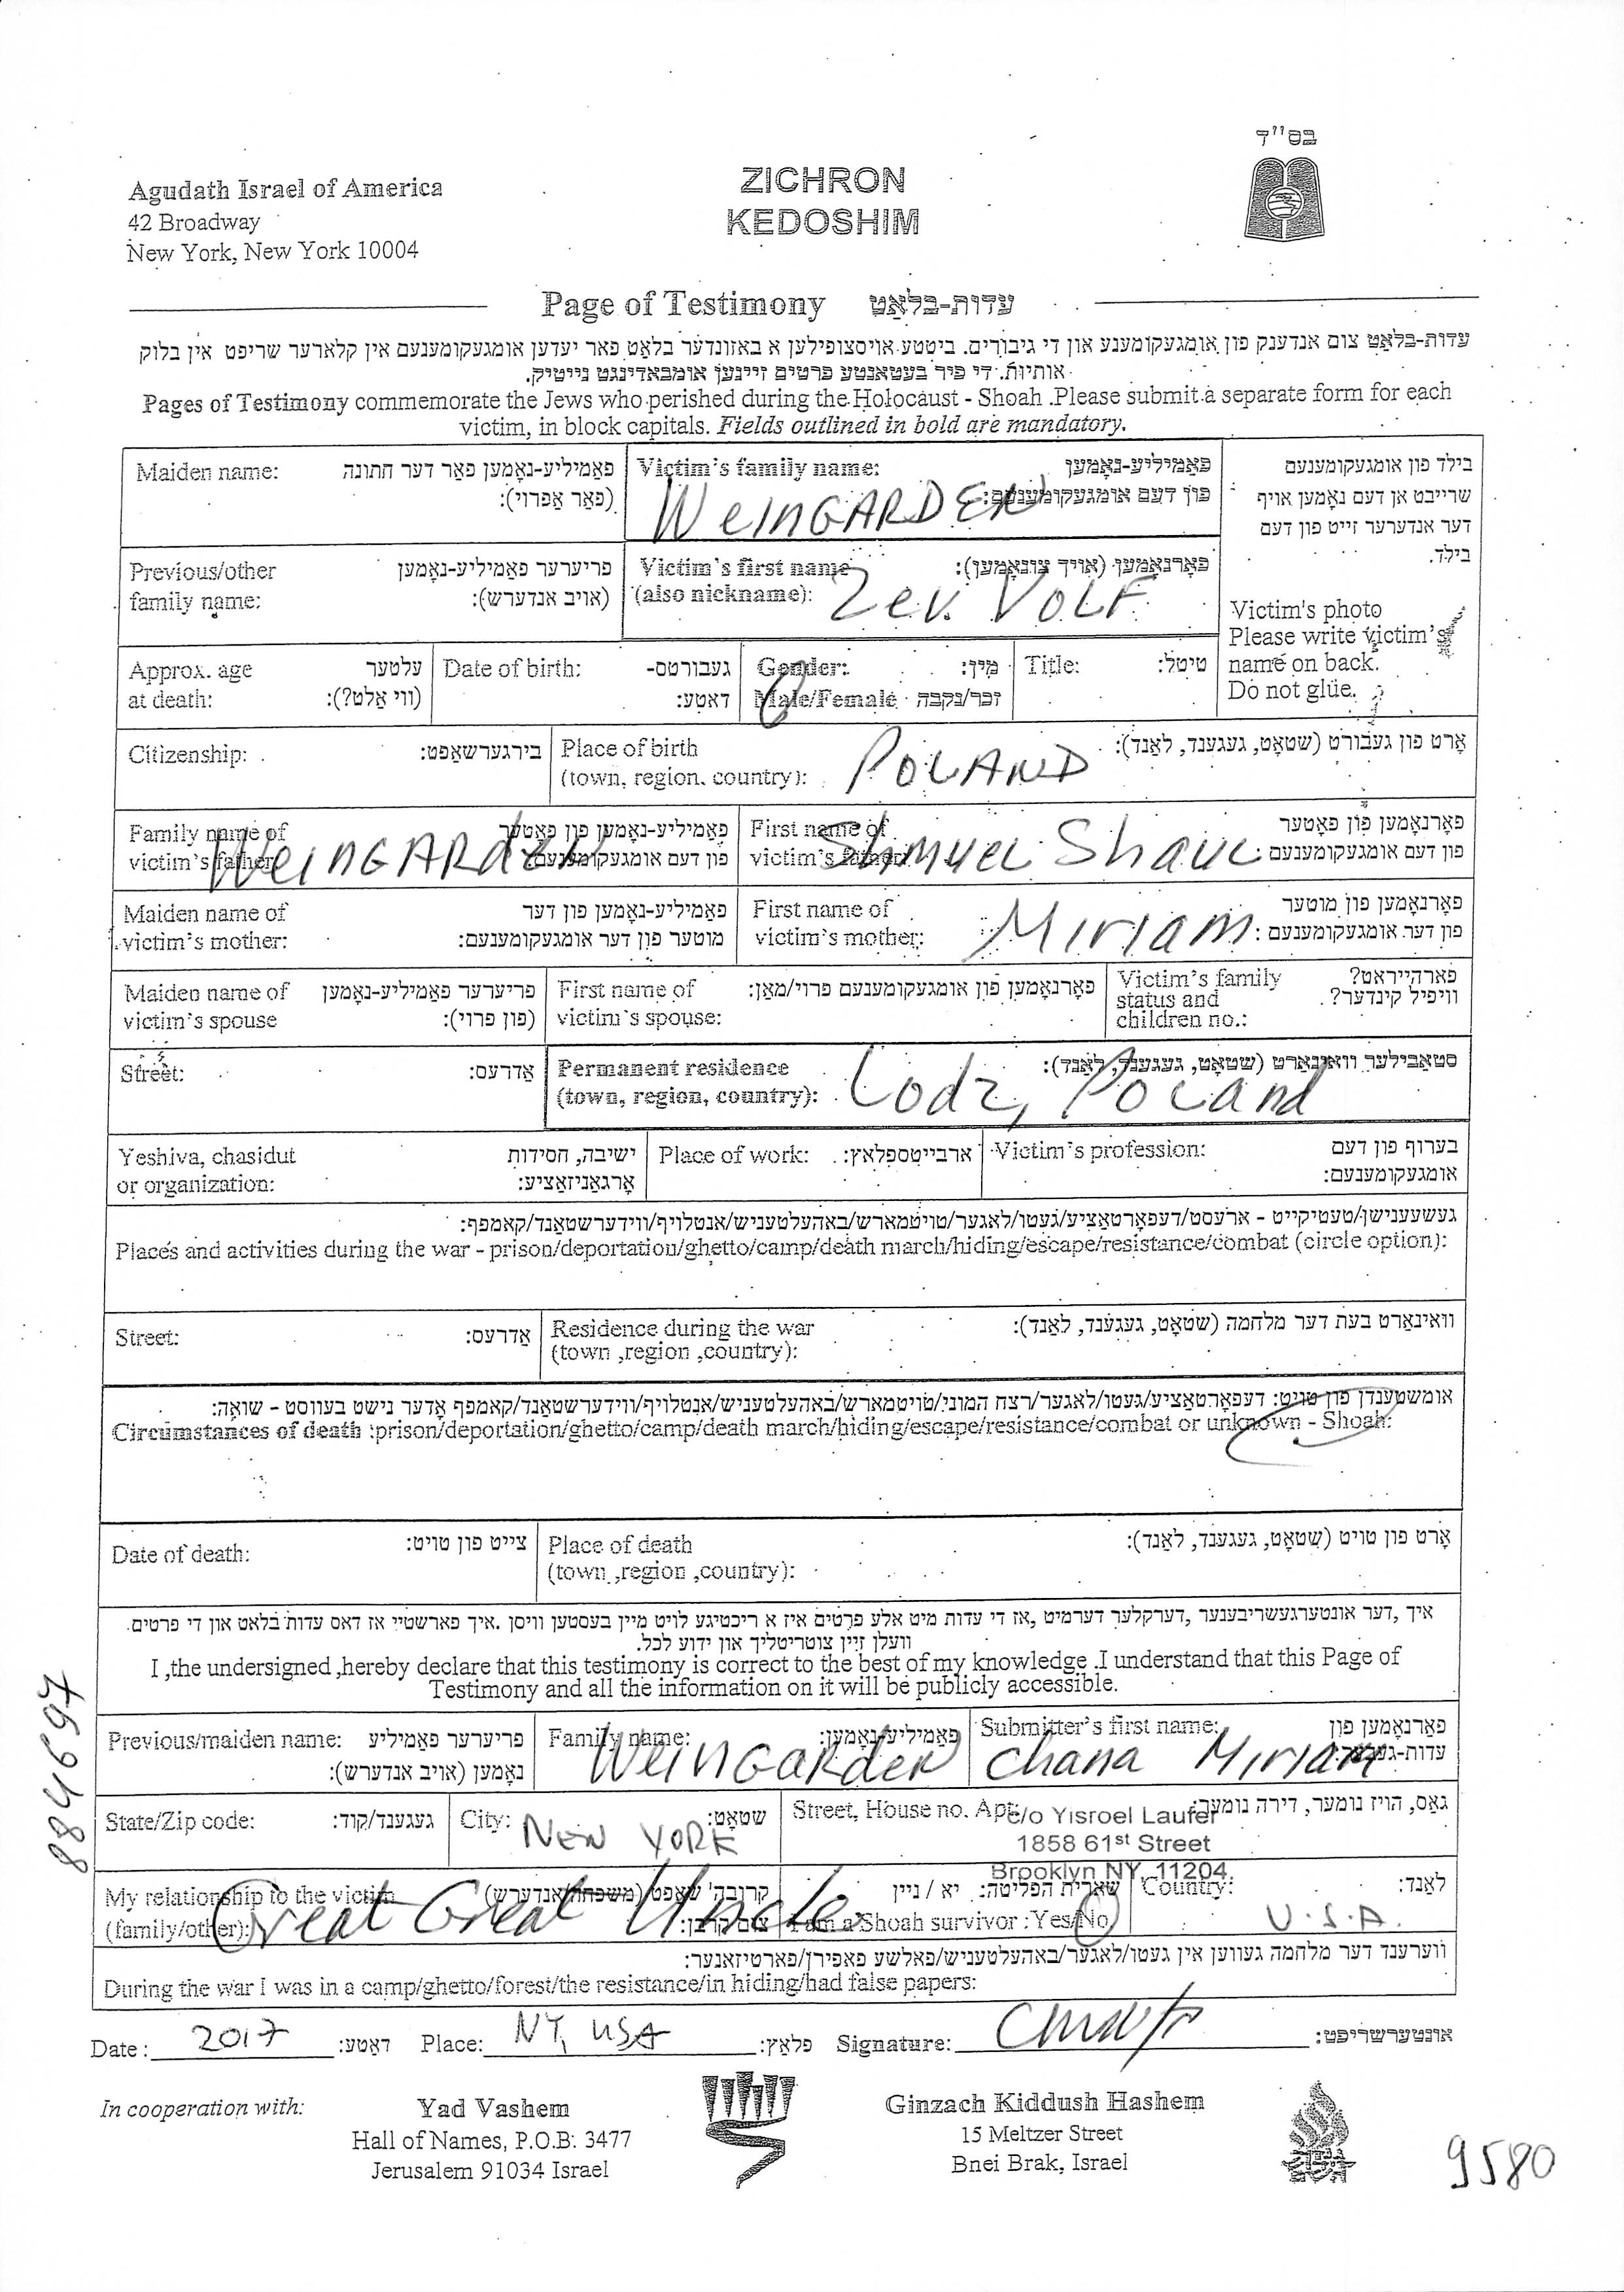 בס"ד
Agudath Israel of America
42 Broadway
New York, New York 10004
ZICHRON
KEDOSHIM
Page of Testimony עדות-בלאַט
עדות-בלאַט צום אנדענק פון אומגעקומענע און די גיבורים. ביטטע אויסצופילען א באזונדער בלאַט פאר יעדען אומגעקומענעם אין קלארער שריפט אין בלוק
אותיות. די פיר בעטאנטע פרטים זיינען אומבאדינגט נייטיק.
Pages of Testimony commemorate the Jews who perished during the Holocaust - Shoah .Please submit a separate form for each
victim, in block capitals. Fields outlined in bold are mandatory.
Maiden name: פאַמיליע-נאָמען פאַר דער חתונה
(פאַר אַפרוי):
Victim's family name: פאַמיליע-נאָמען
פון דעם אומגעקומענעם:
WeinGARDEN
בילד פון אומגעקומענעם
שרייבט אן דעם נאָמען אויף
דער אנדערער זייט פון דעם
בילד.
Victim's photo
Please write victim's
name on back.
Do not glue.
Previous/other פריערער פאַמיליע-נאָמען
family name: (אויב אנדערש):
Victim's first name פאָרנאָמען (אויך צונאָמען):
(also nickname): Zev. VOLF
Approx. age עלטער
at death: (ווי אַלט?):
Date of birth: געבורטס-
דאַטע:
Gender: מין:
Male/Female זכר/נקבה
Title: טיטל:
Citizenship: בירגערשאַפט:
Place of birth אָרט פון געבורט (שטאָט, געגענד, לאַנד):
(town, region, country): POLAND
Family name of פאַמיליע-נאָמען פון פאָטער
victim's father: פון דעם אומגעקומענעם:
WeinGARden
First name of פאָרנאָמען פון פאָטער
victim's father: פון דעם אומגעקומענעם:
Shmuel Shaul
Maiden name of פאַמיליע-נאָמען פון דער
victim's mother: מוטער פון דער אומגעקומענעם:
First name of פאָרנאָמען פון מוטער
victim's mother: פון דער אומגעקומענעם:
Miriam
Maiden name of פריערער פאַמיליע-נאָמען
victim's spouse (פון פרוי):
First name of פאָרנאָמען פון אומגעקומענעם פרוי/מאַן:
victim's spouse:
Victim's family פארהייראט?
status and וויפיל קינדער?
children no.:
Street: אַדרעס:
Permanent residence סטאַבילער וואוינאָרט (שטאָט, געגענד, לאַנד):
(town, region, country): Lodz, Poland
Yeshiva, chasidut ישיבה, חסידות
or organization: אָרגאַניזאַציע:
Place of work: ארבייטספלאץ:
Victim's profession: בערוף פון דעם
אומגעקומענעם:
געשעענישן/טעטיקייט - ארעסט/דעפּאָרטאַציע/געטו/לאַגער/טויטמארש/באַהעלטעניש/אנטלויף/ווידערשטאַנד/קאמפף:
Places and activities during the war - prison/deportation/ghetto/camp/death march/hiding/escape/resistance/combat (circle option):
Street: אַדרעס:
Residence during the war וואוינאָרט בעת דער מלחמה (שטאָט, געגענד, לאַנד):
(town ,region ,country):
אומשטענדן פון טויט: דעפּאָרטאַציע/געטו/לאַגער/רצח המוני/טויטמארש/באַהעלטעניש/אַנטלויף/ווידערשטאַנד/קאמפף אָדער נישט בעוואוסט - שואה:
Circumstances of death :prison/deportation/ghetto/camp/death march/hiding/escape/resistance/combat or unknown - Shoah:
Date of death: צייט פון טויט:
Place of death אָרט פון טויט (שטאָט, געגענד, לאַנד):
(town ,region ,country):
איך, דער אונטערגעשריבענער, דערקלער דערמיט, אז די עדות מיט אלע פרטים איז א ריכטיגע לויט מיין בעסטען וויסן .איך פארשטיי אז דאס עדות בלאט און די פרטים
וועלן זיין צוטריטליך און ידוע לכל.
I ,the undersigned ,hereby declare that this testimony is correct to the best of my knowledge .I understand that this Page of
Testimony and all the information on it will be publicly accessible.
Previous/maiden name: פריערער פאַמיליע
נאָמען (אויב אנדערש):
Family name: פאַמיליע-נאָמען:
WeinGarden
Submitter's first name: פאָרנאָמען פון
עדות-געבער:
Chana Miriam
State/Zip code: געגענד/קוד:
City: שטאָט:
NEW YORK
Street, House no. Apt: גאַס, הויז נומער, דירה נומער:
c/o Yisroel Laufer
1858 61st Street
Brooklyn NY, 11204
My relationship to the victim קרובה'שאַפט (משפחה/אנדערש)
(family/other): צום קרבן:
Great Great Uncle
שארית הפליטה: יא / ניין
I am a Shoah survivor :Yes/No
Country: לאַנד:
U.S.A.
ווערענד דער מלחמה געווען אין געטו/לאַגער/באַהעלטעניש/פאַלשע פאַפירן/פאַרטיזאַנער:
During the war I was in a camp/ghetto/forest/the resistance/in hiding/had false papers:
Date : 2017 דאַטע: Place: NY, USA פלאַץ: Signature: אונטערשריפט:
In cooperation with:
Yad Vashem
Hall of Names, P.O.B. 3477
Jerusalem 91034 Israel
Ginzach Kiddush Hashem
15 Meltzer Street
Bnei Brak, Israel
9580
884697